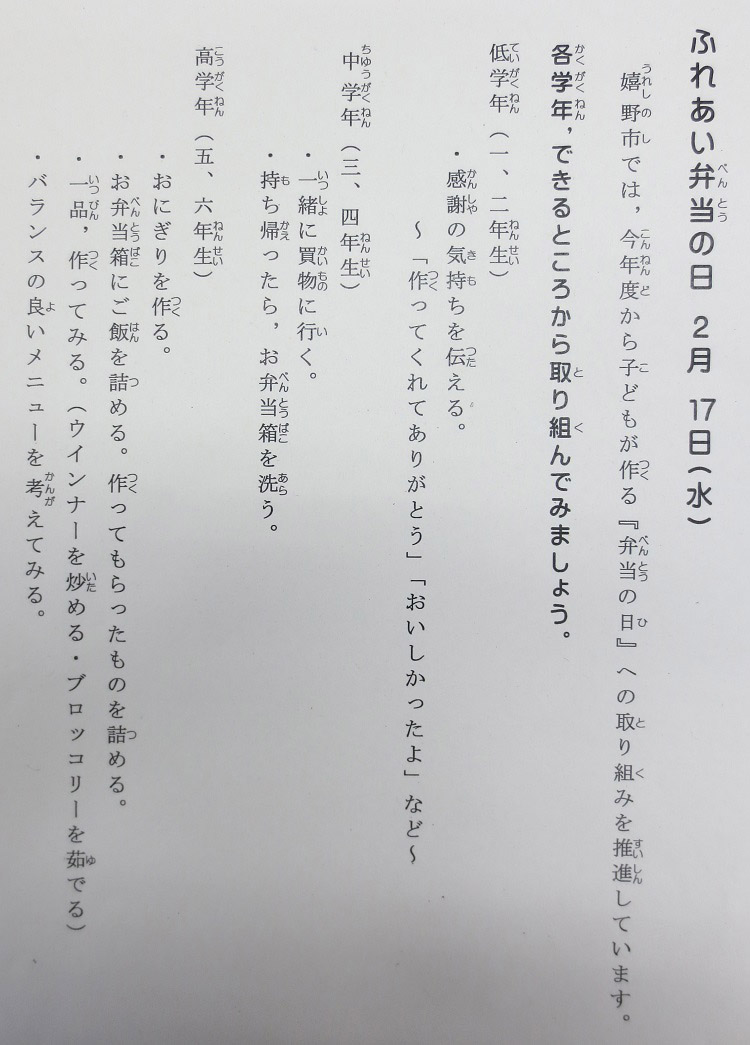 ふれあい弁当の日 2月 17日(水)
嬉野市では,今年度から子どもが作る『弁当の日』への取り組みを推進しています。
各学年,できるところから取り組んでみましょう。
低学年(一、二年生)
・感謝の気持ちを伝える。
~「作ってくれてありがとう」「おいしかったよ」など~
中学年(三、四年生)
・一緒に買物に行く。
・持ち帰ったら,お弁当箱を洗う。
高学年(五、六年生)
・おにぎりを作る。
・お弁当箱にご飯を詰める。作ってもらったものを詰める。
・一品,作ってみる。(ウインナーを炒める・ブロッコリーを茹でる)
・バランスの良いメニューを考えてみる。